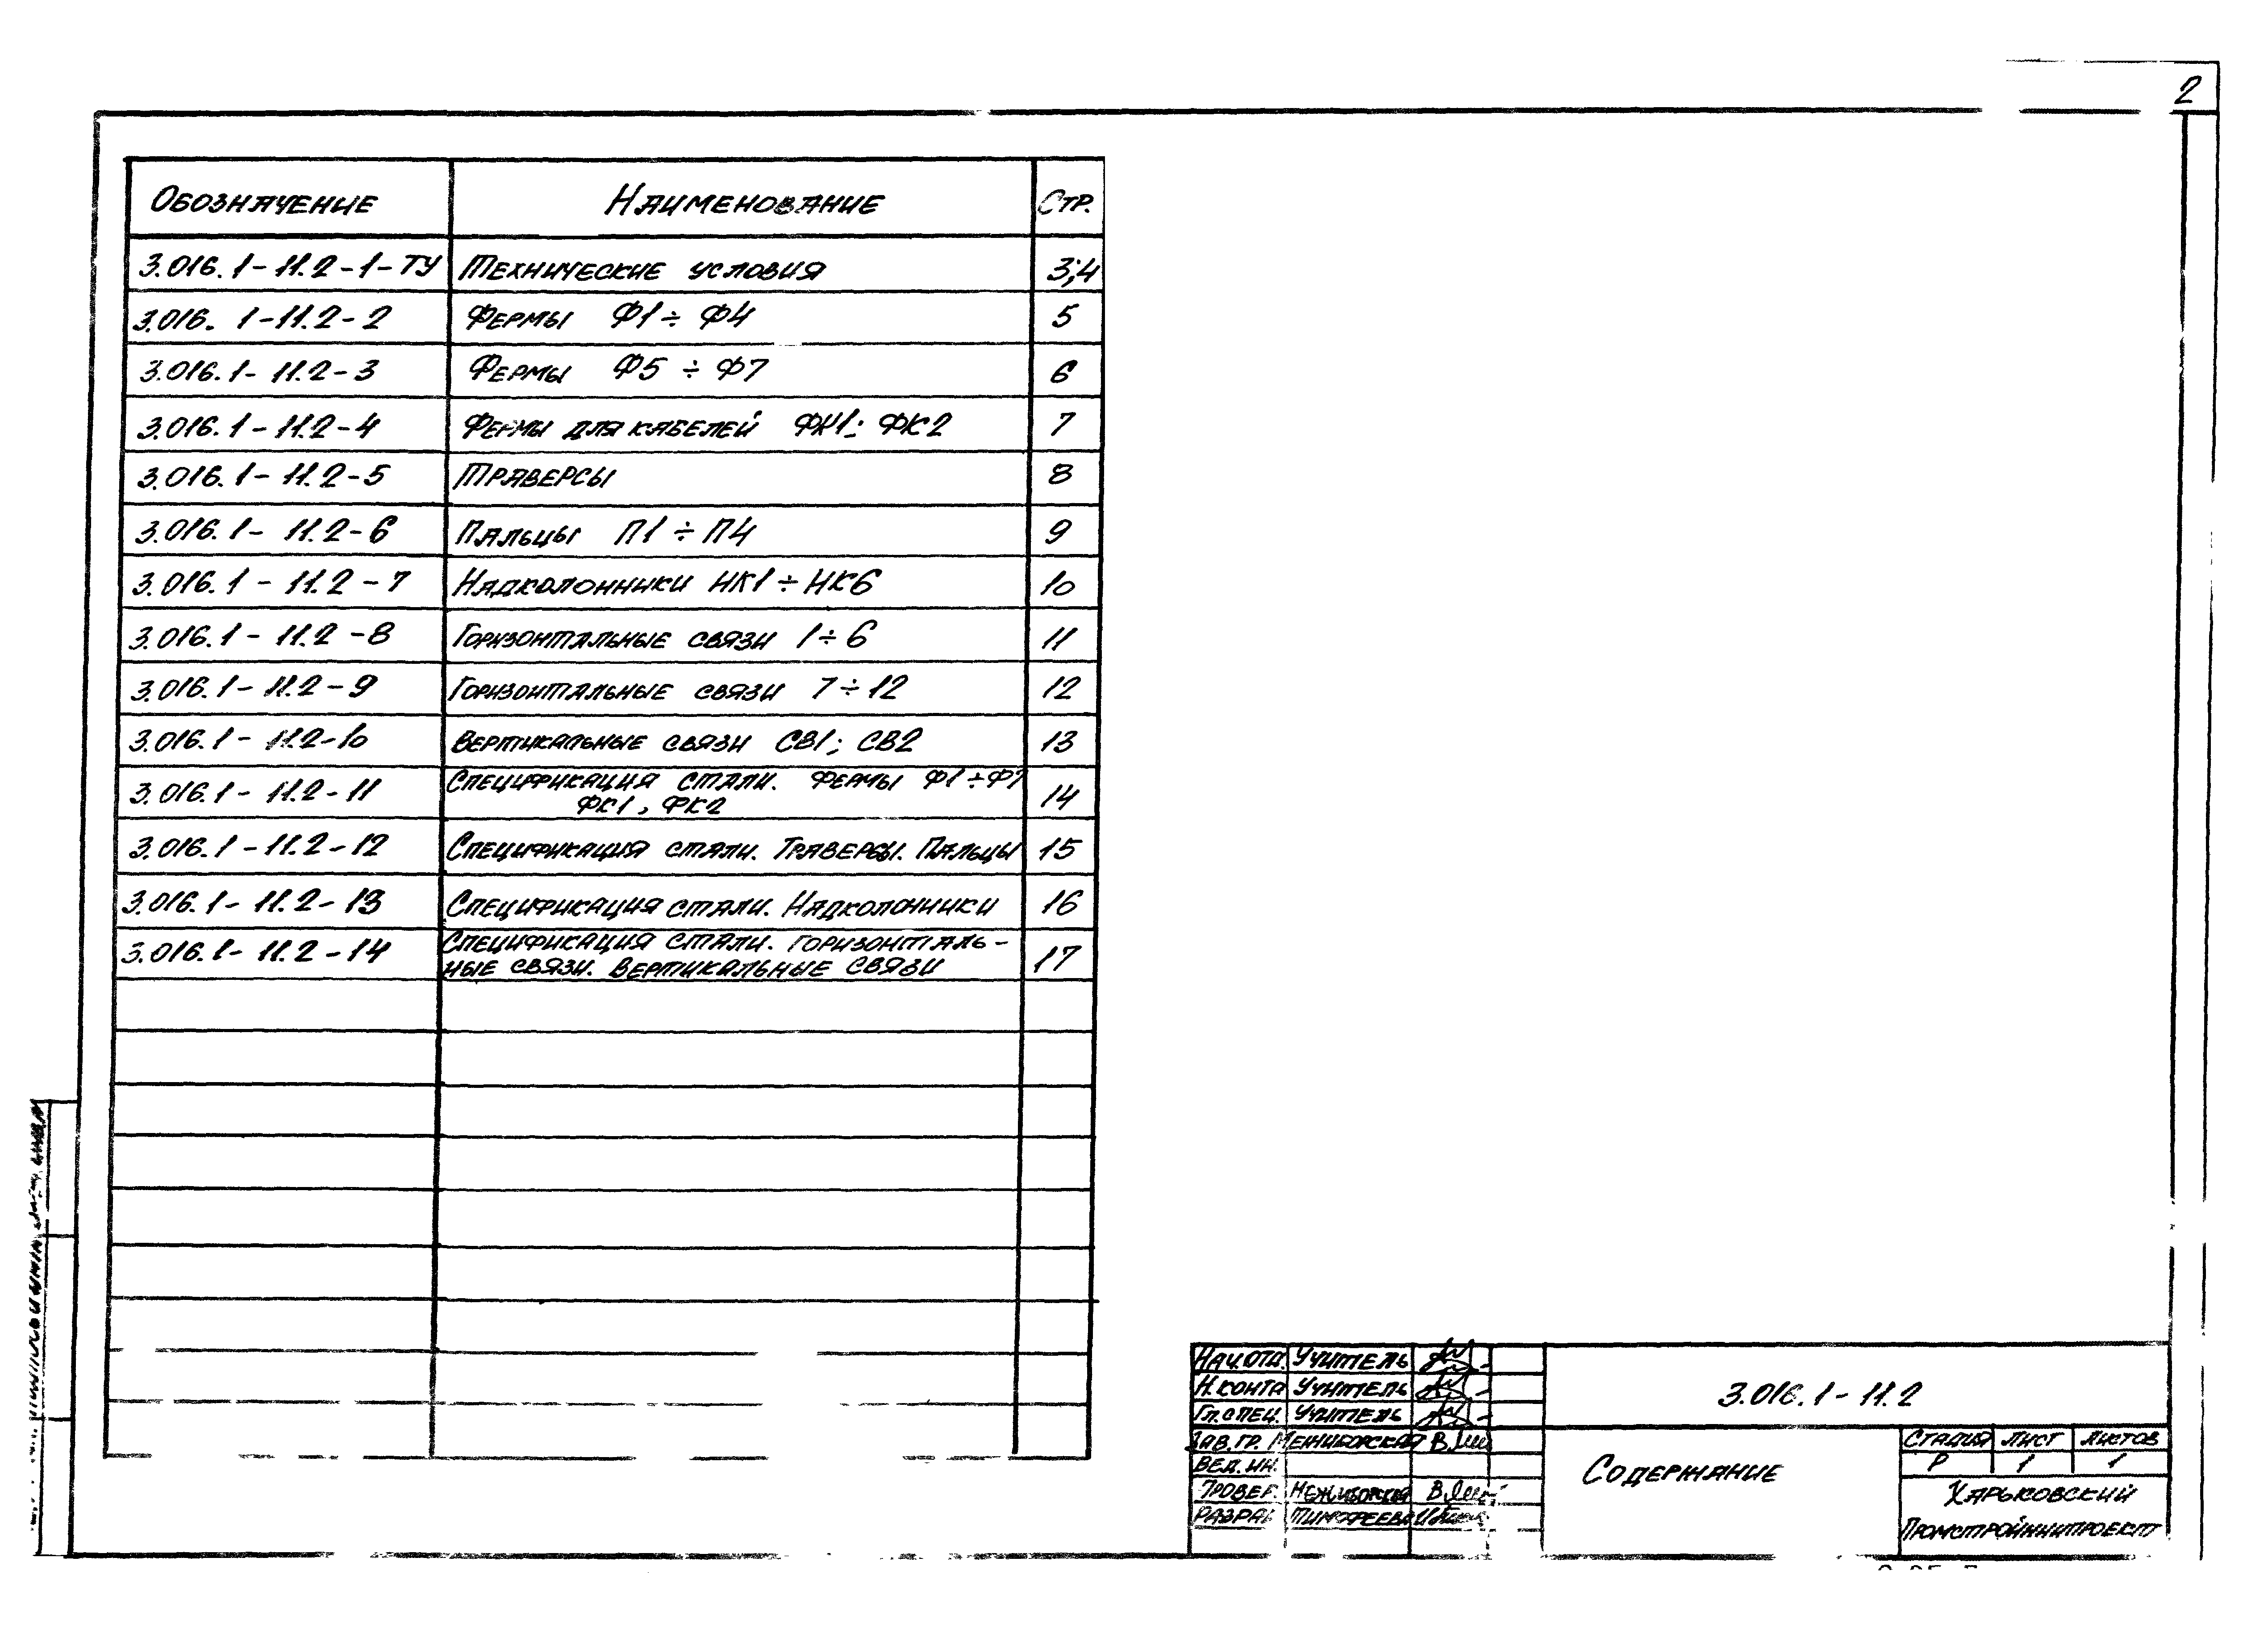 2
Обозначение Наименование Стр.
3.016.1-11.2-1-ТУ Технические условия 3;4
3.016.1-11.2-2 Фермы Ф1÷Ф4 5
3.016.1-11.2-3 Фермы Ф5÷Ф7 6
3.016.1-11.2-4 Фермы для кабелей ФК1; ФК2 7
3.016.1-11.2-5 Траверсы 8
3.016.1-11.2-6 Пальцы П1÷П4 9
3.016.1-11.2-7 Надколонники НК1÷НК6 10
3.016.1-11.2-8 Горизонтальные связи 1÷6 11
3.016.1-11.2-9 Горизонтальные связи 7÷12 12
3.016.1-11.2-10 Вертикальные связи СВ1; СВ2 13
3.016.1-11.2-11 Спецификация стали. Фермы Ф1÷Ф7
ФК1, ФК2 14
3.016.1-11.2-12 Спецификация стали. Траверсы. Пальцы 15
3.016.1-11.2-13 Спецификация стали. Надколонники 16
3.016.1-11.2-14 Спецификация стали. Горизонталь-
ные связи. Вертикальные связи 17
Нач.отд. Учитель
Н.контр Учитель
Гл.спец. Учитель
Зав.гр. Межиборская
Вед.ин.
Провер. Межиборская
Разраб Тимофеева
3.016.1-11.2
Содержание
Стадия Лист Листов
Р 1 1
Харьковский
Промстройниипроект